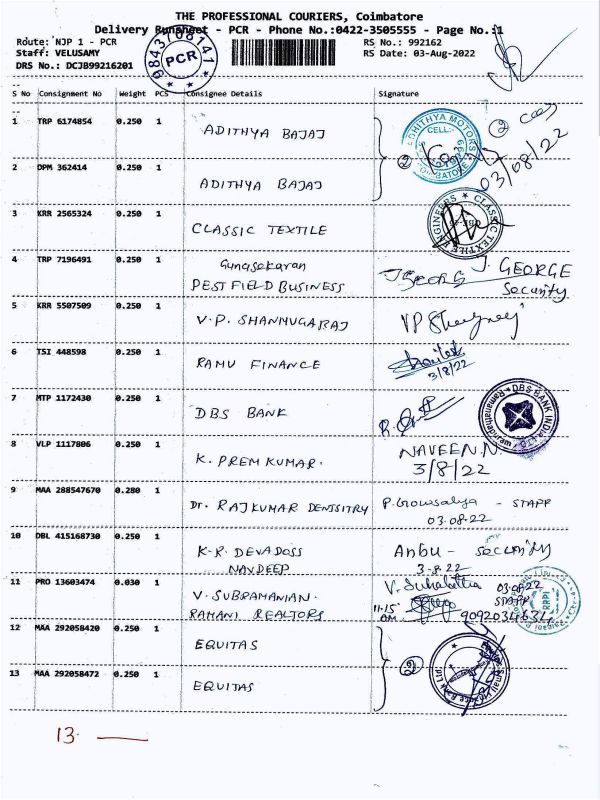 THE PROFESSIONAL COURIERS, Coimbatore
Delivery Runsheet - PCR - Phone No.:0422-3505555 - Page No.:1
Route: NJP 1 - PCR
RS No.: 992162
Staff: VELUSAMY
RS Date: 03-Aug-2022
DRS No.: DCJB99216201
9843708141
PCR
S No Consignment No Weight PCS Consignee Details Signature
1 TRP 6174854 0.250 1 ADITHYA BAJAJ
ADHITHYA MOTORS
CELL:-
2
03/08/22
2 DPM 362414 0.250 1 ADITHYA BAJAJ
3 KRR 2565324 0.250 1 CLASSIC TEXTILE
CLASSIC TEXTILE ENGINEERS
4 TRP 7196491 0.250 1 Gunasekaran
PEST FIELD BUSINESS
J. GEORGE
Security
5 KRR 5507509 0.250 1 V.P. SHANMUGARAJ
6 TSI 448598 0.250 1 RAMU FINANCE
3/8/22
7 MTP 1172430 0.250 1 DBS BANK
DBS BANK INDIA LTD
Ramanathapuram
8 VLP 1117806 0.250 1 K. PREM KUMAR.
NAVEEN.N.
3/8/22
9 MAA 288547670 0.280 1 Dr. RAJKUMAR DENSSITRY
P. Gowsalya - STAFF
03.08.22
10 DBL 415168730 0.250 1 K.R. DEVADOSS
NAVDEEP
Anbu - security
3-8-22
11 PRO 13603474 0.030 1 V. SUBRAMANIAN.
RAMANI REALTORS
03.08.22
STAFF
11.15
AM
RRPL
12 MAA 292058420 0.250 1 EQUITAS
2
13 MAA 292058472 0.250 1 EQUITAS
13